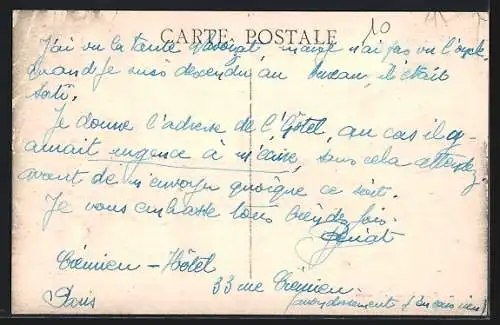 CARTE POSTALE
10
J'ai vu la tante mais n'ai pas vu l'oncle,
Quand je suis descendu au bureau, il était
sorti.
Je donne l'adresse de l'Hôtel, au cas il y
aurait urgence à m'écrire, sans cela attendez
avant de m'envoyer quoique ce soit.
Je vous embrasse tous bien des fois.
Crémieu - Hôtel
33 rue Crémieu.
Paris